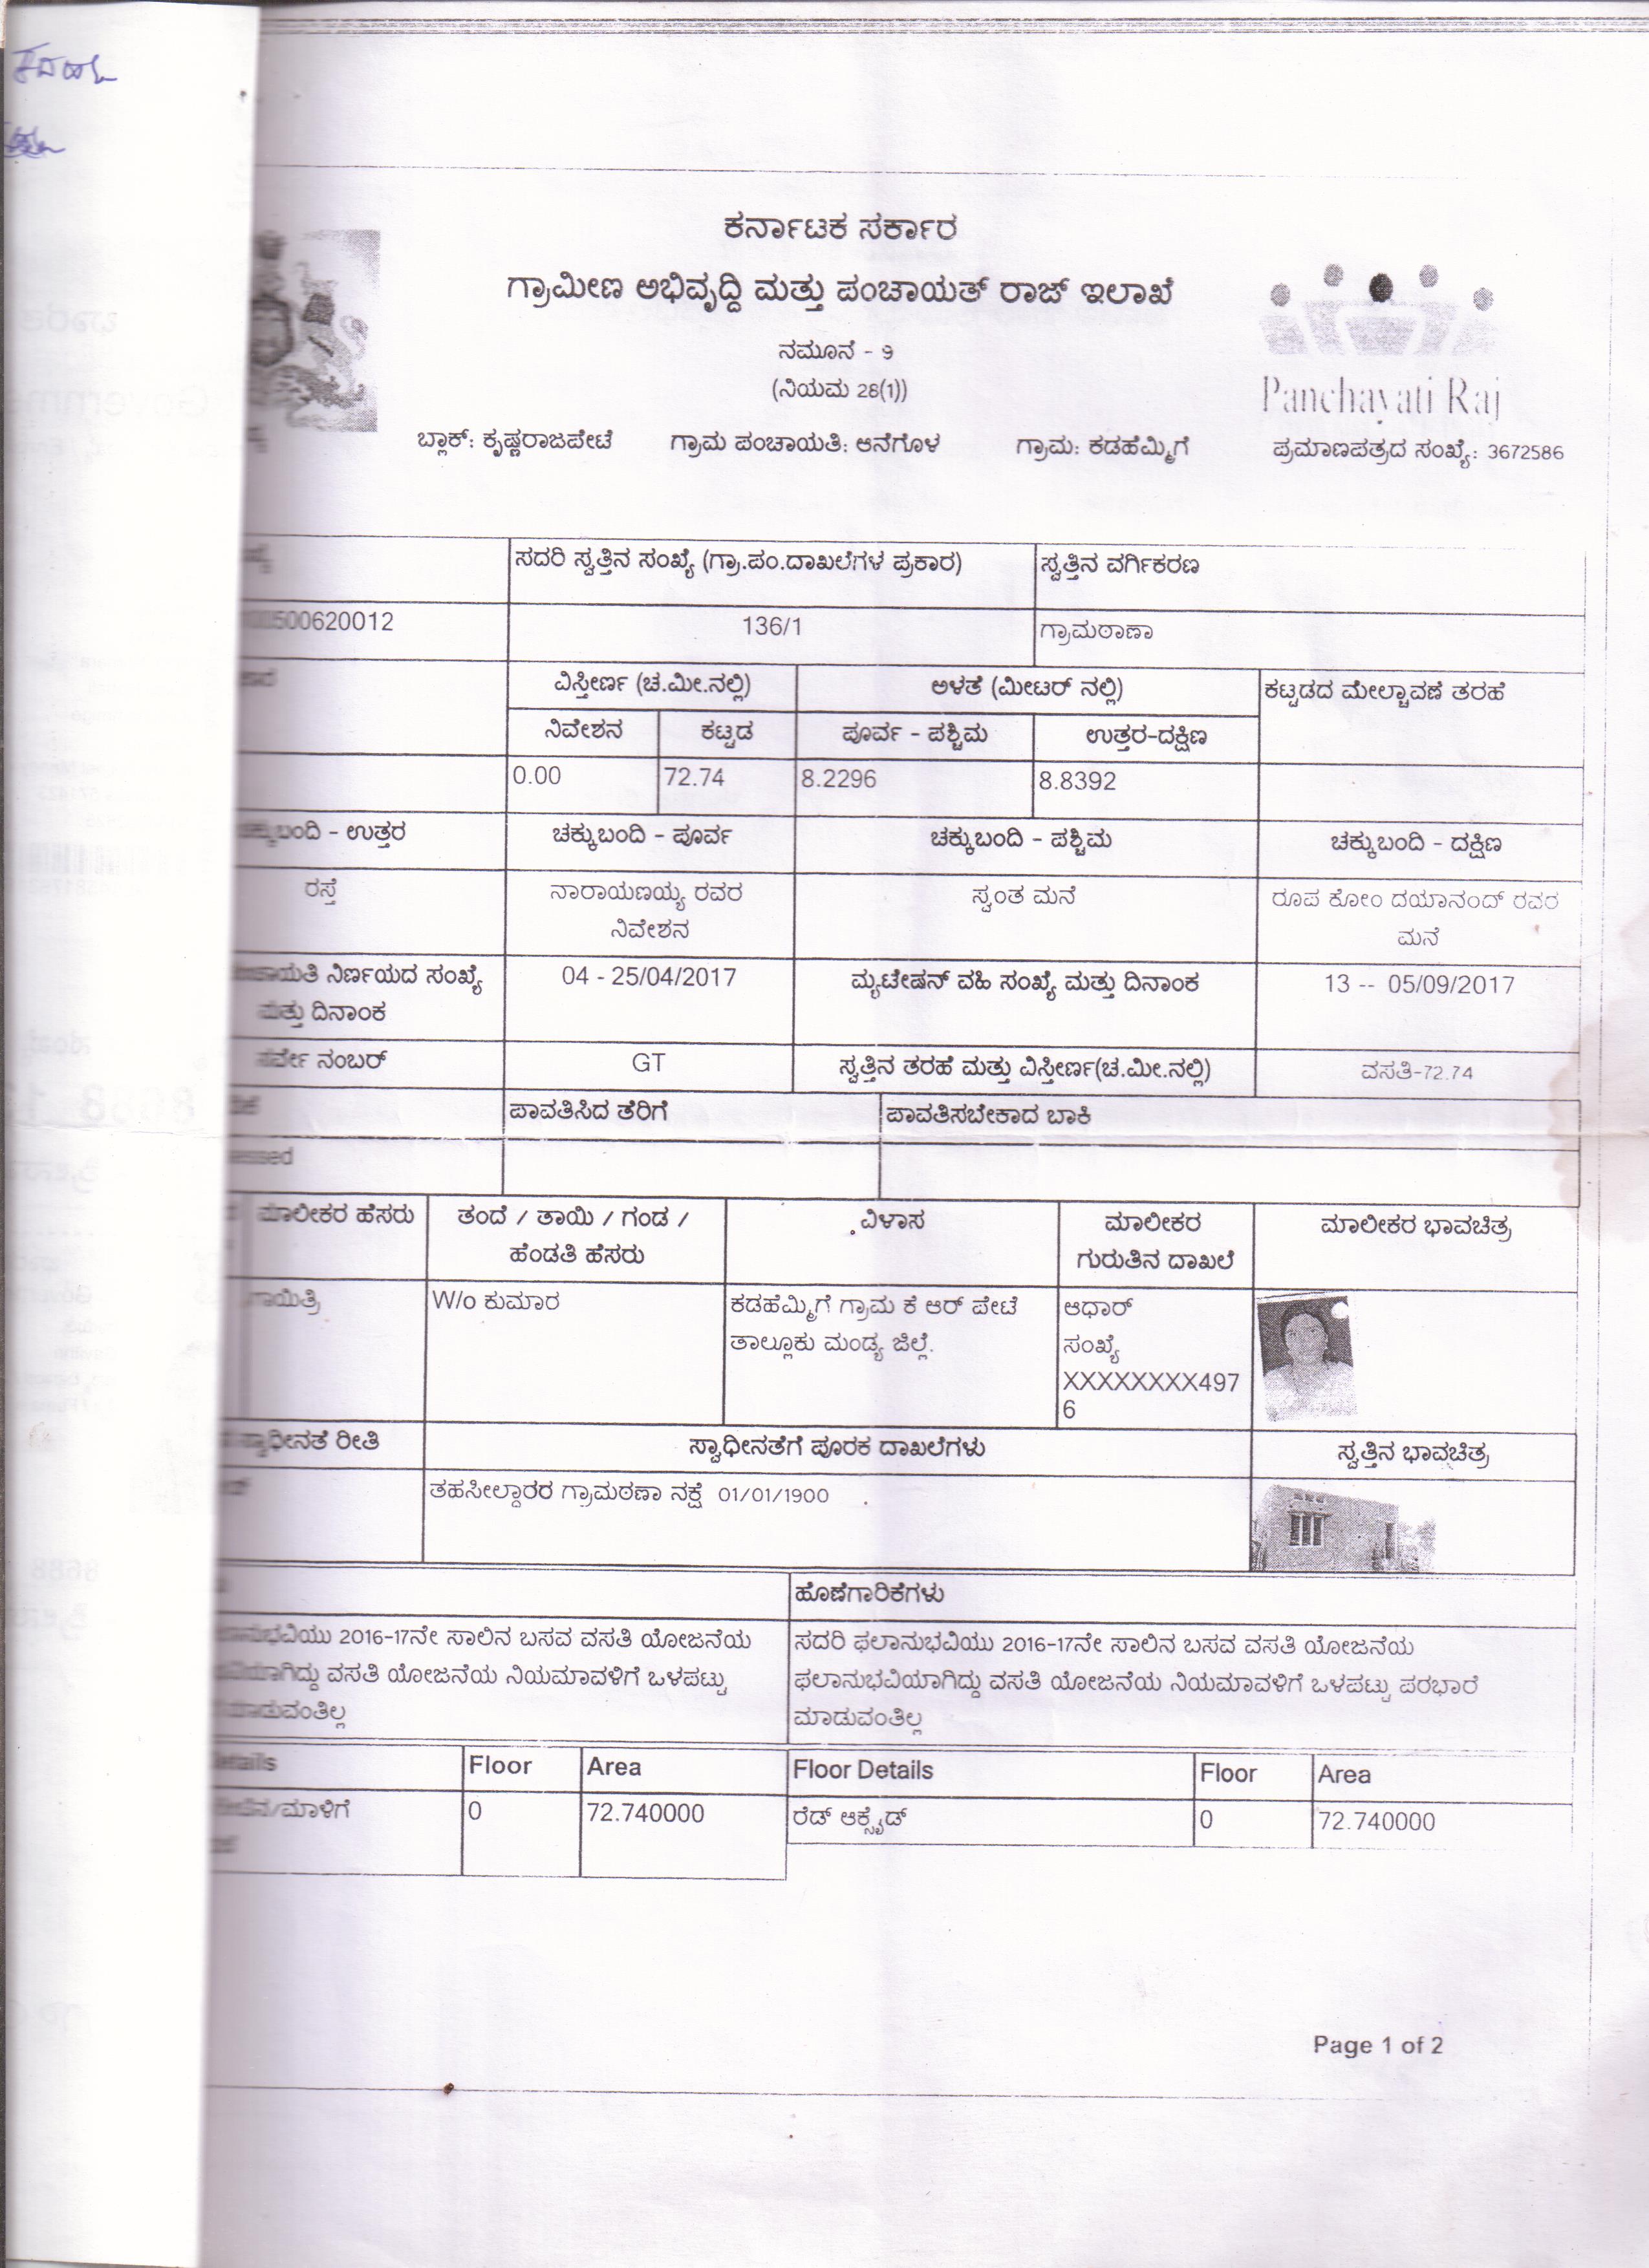 ಕರ್ನಾಟಕ ಸರ್ಕಾರ
ಗ್ರಾಮೀಣ ಅಭಿವೃದ್ದಿ ಮತ್ತು ಪಂಚಾಯತ್ ರಾಜ್ ಇಲಾಖೆ
ನಮೂನೆ - 9
(ನಿಯಮ 28(1))
Panchayati Raj
ಬ್ಲಾಕ್: ಕೃಷ್ಣರಾಜಪೇಟೆ ಗ್ರಾಮ ಪಂಚಾಯತಿ: ಆನೆಗೊಳ ಗ್ರಾಮ: ಕಡಹೆಮ್ಮಿಗೆ ಪ್ರಮಾಣಪತ್ರದ ಸಂಖ್ಯೆ: 3672586
ಸದರಿ ಸ್ವತ್ತಿನ ಸಂಖ್ಯೆ (ಗ್ರಾ.ಪಂ.ದಾಖಲೆಗಳ ಪ್ರಕಾರ) ಸ್ವತ್ತಿನ ವರ್ಗಿಕರಣ
500620012 136/1 ಗ್ರಾಮಠಾಣಾ
ವಿಸ್ತೀರ್ಣ (ಚ.ಮೀ.ನಲ್ಲಿ) ಅಳತೆ (ಮೀಟರ್ ನಲ್ಲಿ) ಕಟ್ಟಡದ ಮೇಲ್ಚಾವಣಿ ತರಹೆ
ನಿವೇಶನ ಕಟ್ಟಡ ಪೂರ್ವ - ಪಶ್ಚಿಮ ಉತ್ತರ-ದಕ್ಷಿಣ
0.00 72.74 8.2296 8.8392
ಚಕ್ಕುಬಂದಿ - ಉತ್ತರ ಚಕ್ಕುಬಂದಿ - ಪೂರ್ವ ಚಕ್ಕುಬಂದಿ - ಪಶ್ಚಿಮ ಚಕ್ಕುಬಂದಿ - ದಕ್ಷಿಣ
ರಸ್ತೆ ನಾರಾಯಣಯ್ಯ ರವರ ಸ್ವಂತ ಮನೆ ರೂಪ ಕೋಂ ದಯಾನಂದ್ ರವರ
ನಿವೇಶನ ಮನೆ
ನಿರ್ಣಯದ ಸಂಖ್ಯೆ 04 - 25/04/2017 ಮ್ಯಟೇಷನ್ ವಹಿ ಸಂಖ್ಯೆ ಮತ್ತು ದಿನಾಂಕ 13 -- 05/09/2017
ಮತ್ತು ದಿನಾಂಕ
ಸರ್ವೇ ನಂಬರ್ GT ಸ್ವತ್ತಿನ ತರಹೆ ಮತ್ತು ವಿಸ್ತೀರ್ಣ(ಚ.ಮೀ.ನಲ್ಲಿ) ವಸತಿ-72.74
ಪಾವತಿಸಿದ ತೆರಿಗೆ ಪಾವತಿಸಬೇಕಾದ ಬಾಕಿ
ಮಾಲೀಕರ ಹೆಸರು ತಂದೆ / ತಾಯಿ / ಗಂಡ / ವಿಳಾಸ ಮಾಲೀಕರ ಮಾಲೀಕರ ಭಾವಚಿತ್ರ
ಹೆಂಡತಿ ಹೆಸರು ಗುರುತಿನ ದಾಖಲೆ
ಗಾಯಿತ್ರಿ W/o ಕುಮಾರ ಕಡಹೆಮ್ಮಿಗೆ ಗ್ರಾಮ ಕೆ ಆರ್ ಪೇಟೆ ಆಧಾರ್
ತಾಲ್ಲೂಕು ಮಂಡ್ಯ ಜಿಲ್ಲೆ. ಸಂಖ್ಯೆ
XXXXXXXX497
6
ಸ್ವಾಧೀನತೆ ರೀತಿ ಸ್ವಾಧೀನತೆಗೆ ಪೂರಕ ದಾಖಲೆಗಳು ಸ್ವತ್ತಿನ ಭಾವಚಿತ್ರ
ತಹಸೀಲ್ದಾರರ ಗ್ರಾಮಠಣಾ ನಕ್ಷೆ 01/01/1900
ಹೊಣೆಗಾರಿಕೆಗಳು
2016-17ನೇ ಸಾಲಿನ ಬಸವ ವಸತಿ ಯೋಜನೆಯ ಸದರಿ ಫಲಾನುಭವಿಯು 2016-17ನೇ ಸಾಲಿನ ಬಸವ ವಸತಿ ಯೋಜನೆಯ
ವಸತಿ ಯೋಜನೆಯ ನಿಯಮಾವಳಿಗೆ ಒಳಪಟ್ಟು ಫಲಾನುಭವಿಯಾಗಿದ್ದು ವಸತಿ ಯೋಜನೆಯ ನಿಯಮಾವಳಿಗೆ ಒಳಪಟ್ಟು ಪರಭಾರೆ
ಮಾಡುವಂತಿಲ್ಲ ಮಾಡುವಂತಿಲ್ಲ
Floor Area Floor Details Floor Area
0 72.740000 ರೆಡ್ ಆಕ್ಸೈಡ್ 0 72.740000
Page 1 of 2